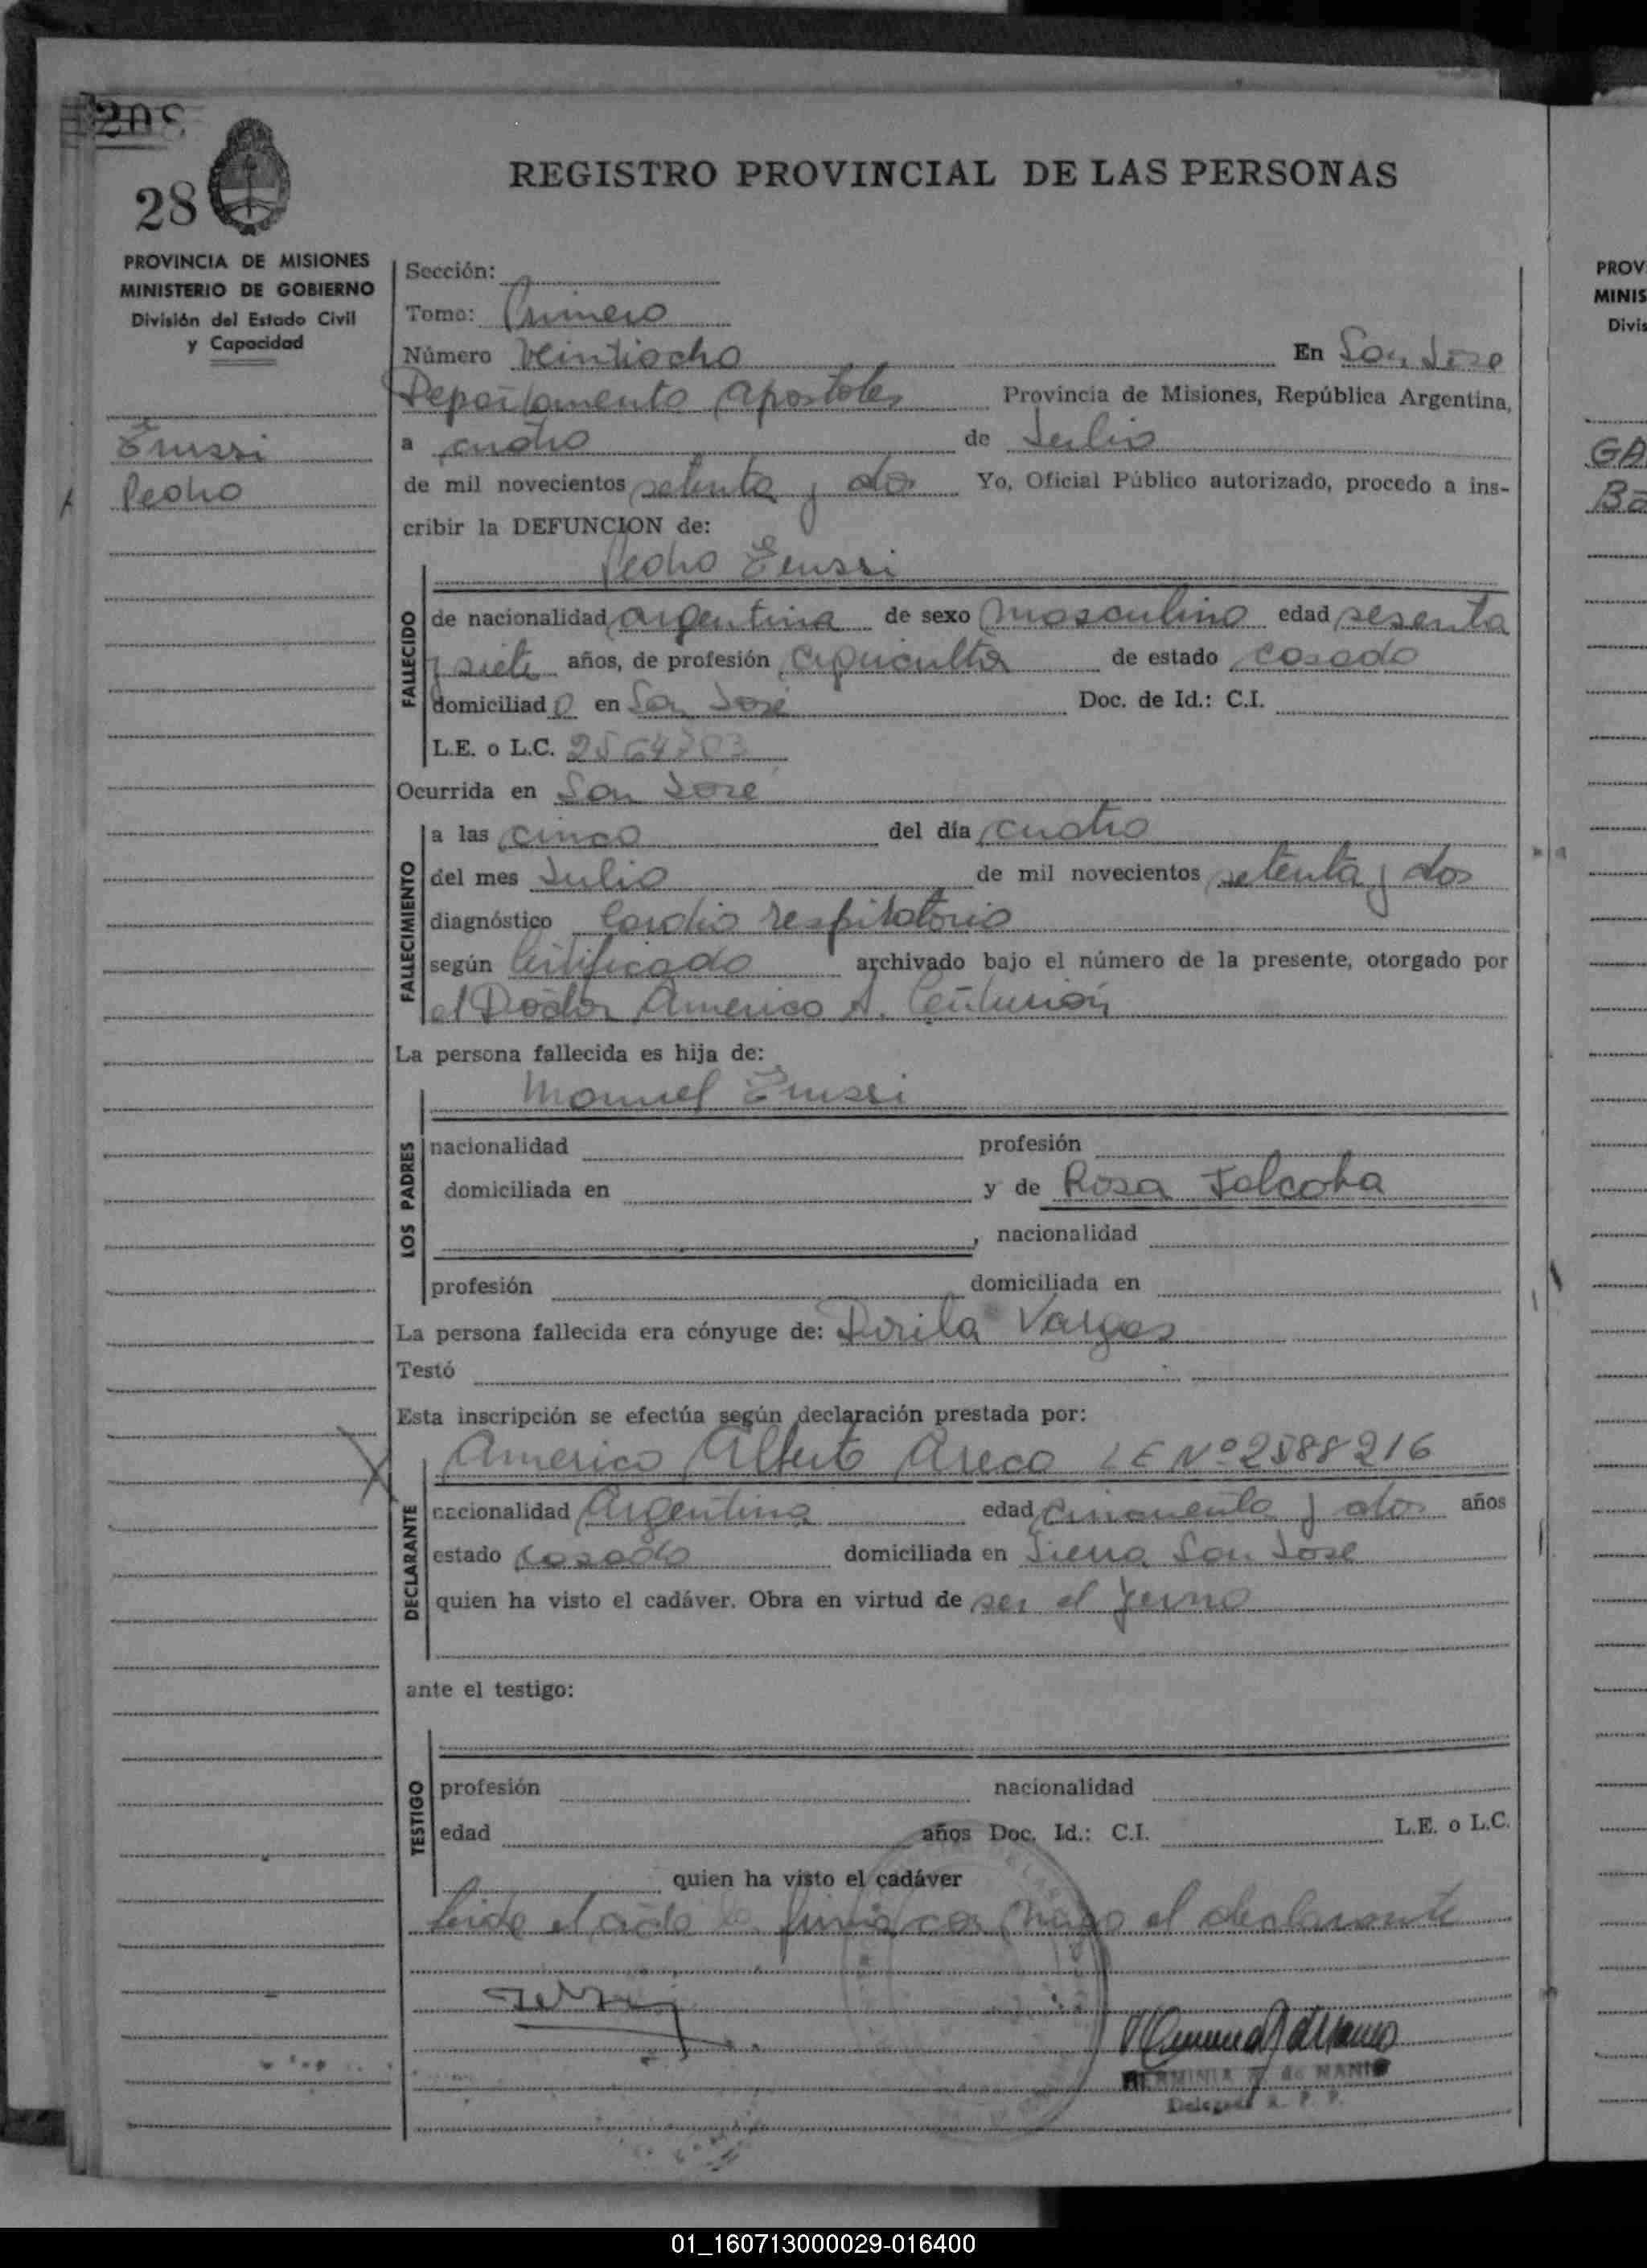 208
28
REGISTRO PROVINCIAL DE LAS PERSONAS
PROVINCIA DE MISIONES
MINISTERIO DE GOBIERNO
División del Estado Civil
y Capacidad
Pedro
Sección:
Tomo: Primero
Número Veintiocho En San José
Departamento Apostoles Provincia de Misiones, República Argentina,
a cuatro de Julio
de mil novecientos setenta y dos Yo, Oficial Público autorizado, procedo a ins-
cribir la DEFUNCION de:
Pedro
FALLECIDO
de nacionalidad argentina de sexo masculino edad sesenta
y siete años, de profesión agricultor de estado casado
domiciliad o en San José Doc. de Id.: C.I.
L.E. o L.C. 2564703
Ocurrida en San José
FALLECIMIENTO
a las cinco del día cuatro
del mes Julio de mil novecientos setenta y dos
diagnóstico Cardio respiratorio
según Certificado archivado bajo el número de la presente, otorgado por
el Doctor Americo A. Centurión
La persona fallecida es hija de:
LOS PADRES
Manuel
nacionalidad profesión
domiciliada en y de Rosa
, nacionalidad
profesión domiciliada en
La persona fallecida era cónyuge de: Vargas
Testó
Esta inscripción se efectúa según declaración prestada por:
DECLARANTE
Americo Alberto Areco LE Nº 2588216
nacionalidad Argentina edad cincuenta y dos años
estado casado domiciliada en Sierra San José
quien ha visto el cadáver. Obra en virtud de ser el yerno
ante el testigo:
TESTIGO
profesión nacionalidad
edad años Doc. Id.: C.I. L.E. o L.C.
quien ha visto el cadáver
Leida el acta la firma con migo el declarante
HERMINIA de NANIO
PROV
MINIS
Divis
GA
01_160713000029-016400